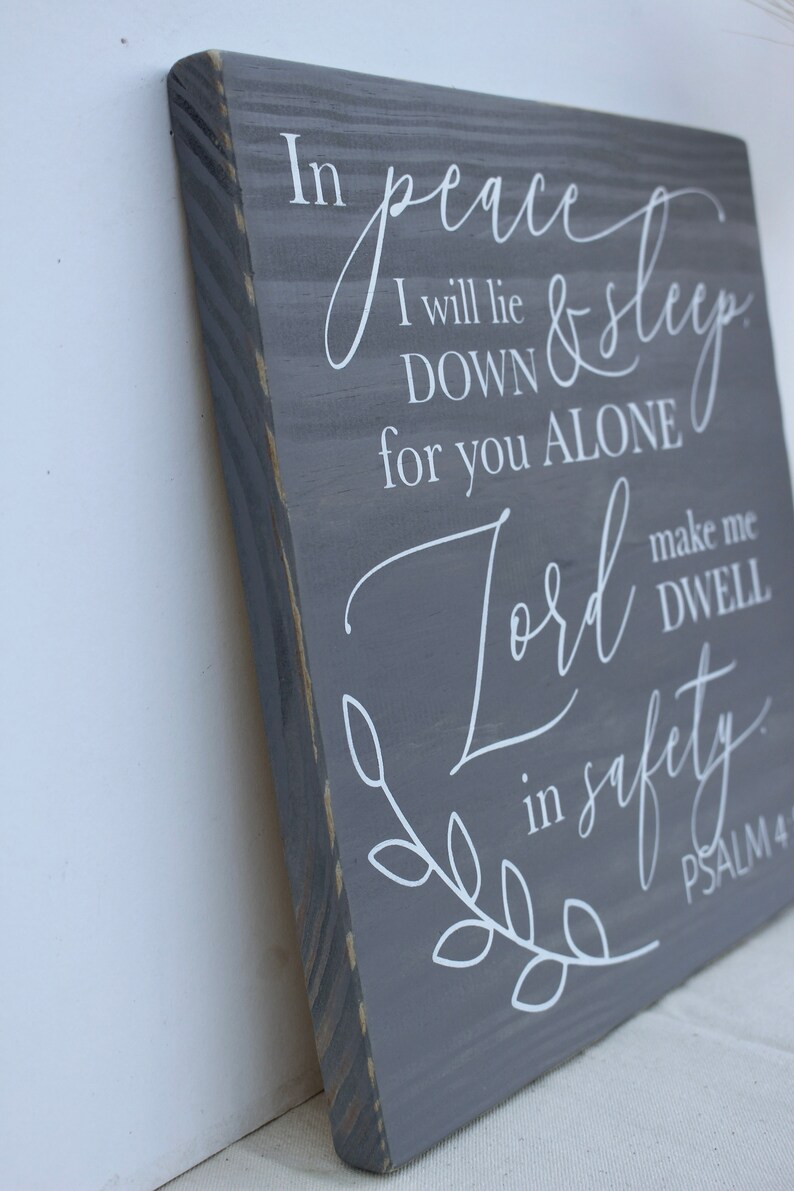 In peace
I will lie
DOWN & sleep.
for you ALONE
Lord make me
DWELL
in safety.
PSALM 4: